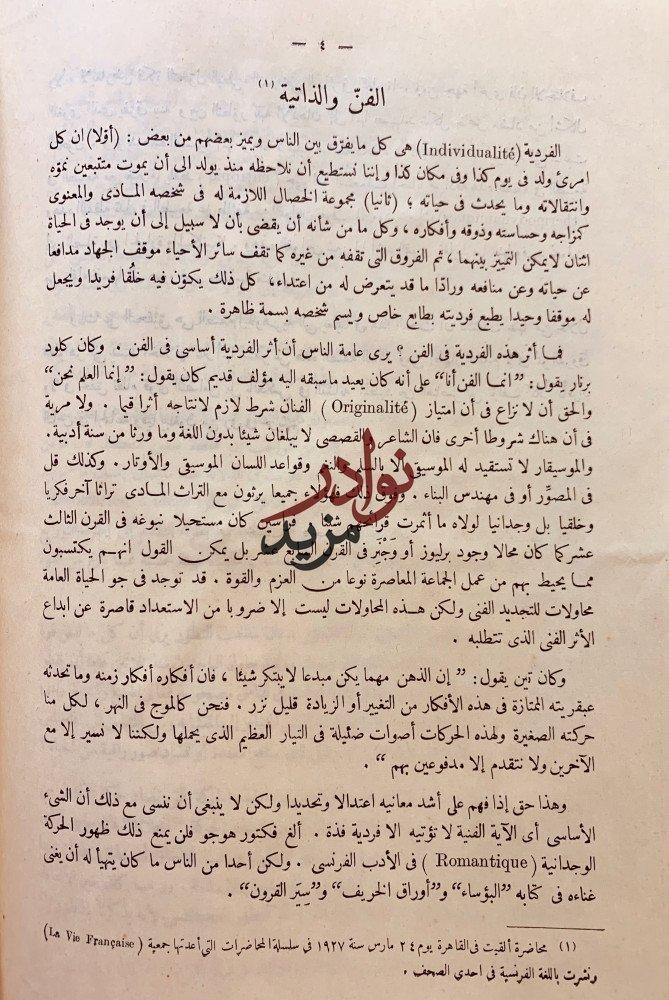 — ٤ —
الفنّ والذاتية (١)
الفردية (Individualité) هى كل ما يفرّق بين الناس ويميز بعضهم من بعض : (أوّلا) ان كل
امرئ ولد فى يوم كذا وفى مكان كذا وإننا نستطيع أن نلاحظه منذ يولد الى أن يموت متتبعين نموّه
وانتقالاته وما يحدث فى حياته ؛ (ثانيا) مجموعة الخصال اللازمة له فى شخصه المادى والمعنوى
كمزاجه وحساسته وذوقه وأفكاره ، وكل ما من شأنه أن يقضى بأن لا سبيل إلى أن يوجد فى الحياة
اثنان لا يمكن التمييز بينهما ، ثم الفروق التى تقفه من غيره كما تقف سائر الأحياء موقف الجهاد مدافعا
عن حياته وعن منافعه ورادّا ما قد يتعرض له من اعتداء، كل ذلك يكوّن فيه خلُقا فريدا ويجعل
له موقفا وحيدا يطبع فرديته بطابع خاص و يسم شخصه بسمة ظاهرة .
فما أثر هذه الفردية فى الفن ؟ يرى عامة الناس أن أثر الفردية أساسى فى الفن . وكان كلود
برنار يقول : ”انما الفن أنا“ على أنه كان يعيد ما سبقه اليه مؤلف قديم كان يقول : ”إنما العلم نحن“
والحق أن لا نزاع فى أن امتياز (Originalité) الفنان شرط لازم لانتاجه أثرا قيما . ولا مرية
فى أن هناك شروطا أخرى فان الشاعر والقصصى لا يبلغان شيئا بدون اللغة وما ورثا من سنة أدبية .
والموسيقار لا تستقيد له الموسيقى الا بالسلم والنغم وقواعد اللسان الموسيقى والأوتار . وكذلك قل
فى المصوّر أو فى مهندس البناء . وفوق ذلك فهؤلاء جميعا يرثون مع التراث المادى تراثا آخر فكريا
وخلقيا بل وجدانيا لولاه ما أثمرت قرائحهم شيئا . فراسين كان مستحيلا نبوغه فى القرن الثالث
عشر كما كان محالا وجود برليوز أو وَجْنَر فى القرن الرابع عشر بل يمكن القول انهم يكتسبون
مما يحيط بهم من عمل الجماعة المعاصرة نوعا من العزم والقوة . قد توجد فى جو الحياة العامة
محاولات للتجديد الفنى ولكن هذه المحاولات ليست إلا ضروبا من الاستعداد قاصرة عن ابداع
الأثر الفنى الذى تتطلبه .
وكان تين يقول : ” إن الذهن مهما يكن مبدعا لا يبتكر شيئا ، فان أفكاره أفكار زمنه وما تحدثه
عبقريته الممتازة فى هذه الأفكار من التغيير أو الزيادة قليل نزر . فنحن كالموج فى النهر ، لكل منا
حركته الصغيرة ولهذه الحركات أصوات ضئيلة فى التيار العظيم الذى يحملها ولكننا لا نسير إلا مع
الآخرين ولا نتقدم إلا مدفوعين بهم “ .
وهذا حق إذا فهم على أشد معانيه اعتدالا وتحديدا ولكن لا ينبغى أن ننسى مع ذلك أن الشىء
الأساسى أى الآية الفنية لا تؤتيه الا فردية فذة . ألغ فكتور هوجو فلن يمنع ذلك ظهور الحركة
الوجدانية (Romantique) فى الأدب الفرنسى . ولكن أحدا من الناس ما كان يتهيأ له أن يغنى
غناءه فى كتابه ”البؤساء“ و”أوراق الخريف“ و”سِيَر القرون“ .
(١) محاضرة ألقيت فى القاهرة يوم ٢٤ مارس سنة ١٩٢٧ فى سلسلة المحاضرات التى أعدتها جمعية (La Vie Française)
ونشرت باللغة الفرنسية فى احدى الصحف .
نوادر
مزيد